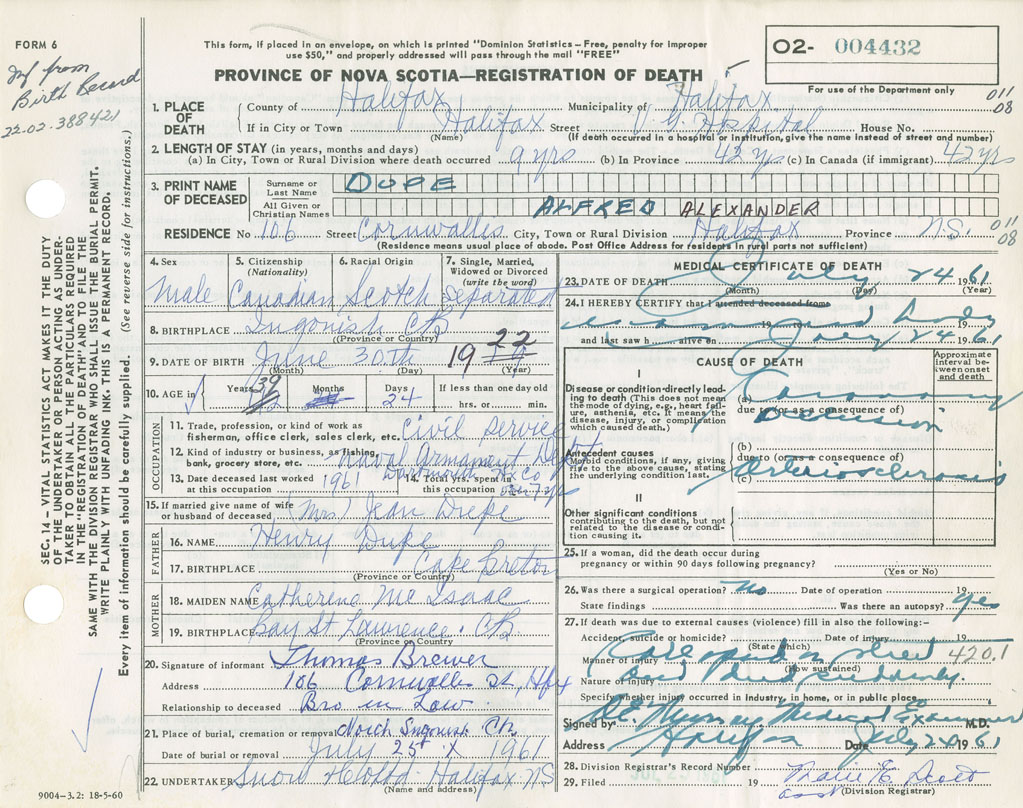 FORM 6
Inf from
Birth Record
22.02.388421
This form, if placed in an envelope, on which is printed "Dominion Statistics – Free, penalty for improper
use $50," and properly addressed will pass through the mail "FREE"
PROVINCE OF NOVA SCOTIA—REGISTRATION OF DEATH
O2- 004432
For use of the Department only
011
08
1. PLACE OF DEATH
County of Halifax Municipality of Halifax
If in City or Town Halifax Street V. G. Hospital House No.
(Name) (If death occurred in a hospital or institution, give the name instead of street and number)
2. LENGTH OF STAY (in years, months and days)
(a) In City, Town or Rural Division where death occurred 9 yrs (b) In Province 42 yrs (c) In Canada (if immigrant) 42 yrs
3. PRINT NAME OF DECEASED
Surname or Last Name DUPE
All Given or Christian Names ALFRED ALEXANDER
RESIDENCE No 106 Street Cornwallis City, Town or Rural Division Halifax Province N.S.
011
08
(Residence means usual place of abode. Post Office Address for residents in rural parts not sufficient)
4. Sex
Male
5. Citizenship (Nationality)
Canadian
6. Racial Origin
Scotch
7. Single, Married, Widowed or Divorced (write the word)
Separated
8. BIRTHPLACE Ingonish CB
(Province or Country)
9. DATE OF BIRTH June 30th 19 22
(Month) (Day) (Year)
10. AGE in Years 39 Months Days 24 If less than one day old
hrs. or min.
OCCUPATION
11. Trade, profession, or kind of work as fisherman, office clerk, sales clerk, etc. Civil Service
12. Kind of industry or business, as fishing, bank, grocery store, etc. Naval Armament Depot
Dartmouth Hfx Co
13. Date deceased last worked at this occupation 1961
14. Total yrs. spent in this occupation Over 7 yrs
15. If married give name of wife or husband of deceased (Mrs) Jean Dupe
FATHER
16. NAME Henry Dupe
17. BIRTHPLACE Cape Breton
(Province or Country)
MOTHER
18. MAIDEN NAME Catherene Mc Isaac
19. BIRTHPLACE Bay St Lawrence. CB
(Province or Country)
20. Signature of informant Thomas Brewer
Address 106 Cornwallis St, Hfx
Relationship to deceased Bro in Law
21. Place of burial, cremation or removal North Ingonish CB
Date of burial or removal July 25th 1961
22. UNDERTAKER Snow & Co Ltd Halifax NS
(Name and address)
9004–3.2: 18-5-60
SEC. 14 – VITAL STATISTICS ACT MAKES IT THE DUTY
OF THE UNDERTAKER OF PERSON ACTING AS UNDER-
TAKER TO OBTAIN ALL THE PARTICULARS REQUIRED
IN THE "REGISTRATION OF DEATH" AND TO FILE THE
SAME WITH THE DIVISION REGISTRAR WHO SHALL ISSUE THE BURIAL PERMIT.
WRITE PLAINLY WITH UNFADING INK. THIS IS A PERMANENT RECORD.
Every item of information should be carefully supplied. (See reverse side for instructions.)
MEDICAL CERTIFICATE OF DEATH
23. DATE OF DEATH July 24 1961
(Month) (Day) (Year)
24. I HEREBY CERTIFY that I attended deceased from
19 body 19
and last saw h alive on July 24 1961
CAUSE OF DEATH
Approximate interval between onset and death
I
Disease or condition-directly leading to death (This does not mean the mode of dying, e.g., heart failure, asthenia, etc. It means the disease, injury, or complication which caused death.)
(a) Coronary
due to (or as a consequence of)
Occlusion
Antecedent causes
Morbid conditions, if any, giving rise to the above cause, stating the underlying condition last.
(b)
due to (or as a consequence of)
(c) Arteriosclerosis
II
Other significant conditions
contributing to the death, but not related to the disease or condition causing it.
25. If a woman, did the death occur during pregnancy or within 90 days following pregnancy?
(Yes or No)
26. Was there a surgical operation? No Date of operation 19
State findings Was there an autopsy? Yes
27. If death was due to external causes (violence) fill in also the following:-
Accident, suicide or homicide? Date of injury 19
(State which)
420.1
Manner of injury on street
(How sustained)
Nature of injury and died suddenly.
Specify whether injury occurred in industry, in home, or in public place
Signed by Murray Medical Examiner M.D.
Address Halifax Date July 24 1961
28. Division Registrar's Record Number
29. Filed JUL 25 1961 19 Marie E. Scott
asst (Division Registrar)